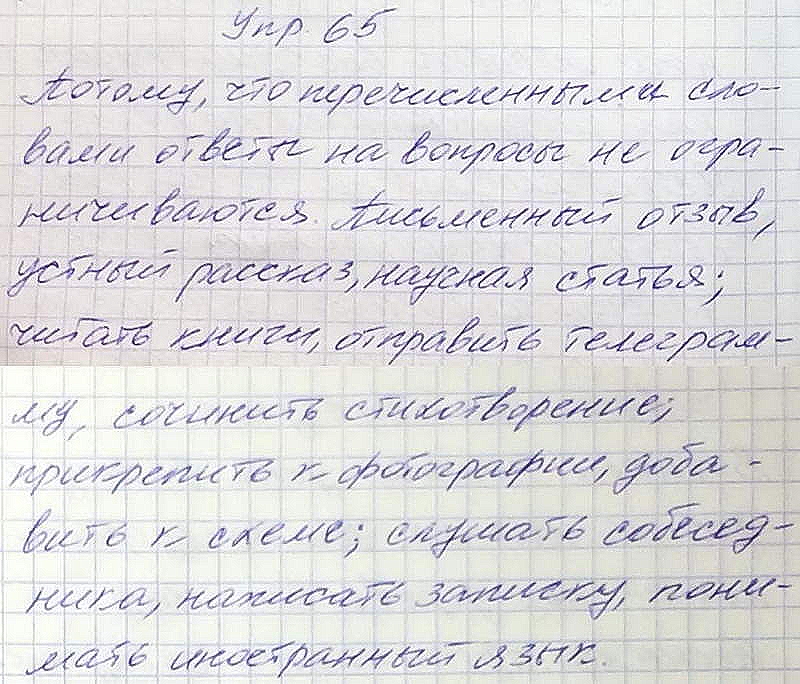 Упр. 65
Потому, что перечисленными сло-
вами ответы на вопросы не огра-
ничиваются. Письменный отзыв,
устный рассказ, научная статья;
читать книги, отправить телеграм-
му, сочинить стихотворение;
прикрепить к фотографии, доба-
вить к схеме; слушать собесед-
ника, написать записку, пони-
мать иностранный язык.